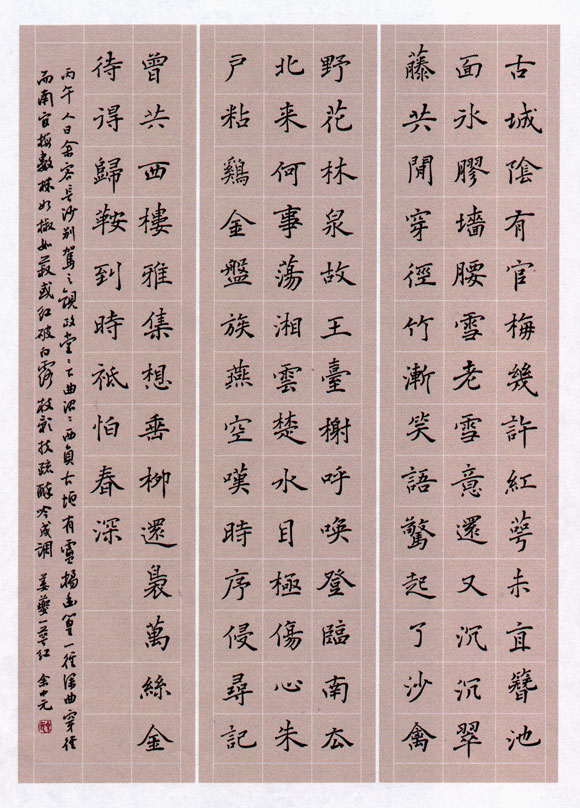 古城陰有官梅幾許紅萼未宜簪池
面氷膠墻腰雪老雪意還又沉沉翠
藤共閒穿徑竹漸笑語驚起了沙禽
野花林泉故王臺榭呼喚登臨南去
北来何事蕩湘雲楚水目極傷心朱
戶粘鷄金盤族燕空嘆時序侵尋記
曾共西樓雅集想垂柳還裊萬絲金
待得歸鞍到時祗怕春深
丙午人日余客長沙別駕之觀政堂〻下曲沼〻西負古垣有盧橘幽篁一徑深曲穿徑
而南官梅數株如椒如菽或紅破白露枝影扶疏醉吟成調 姜夔一萼紅 余中元